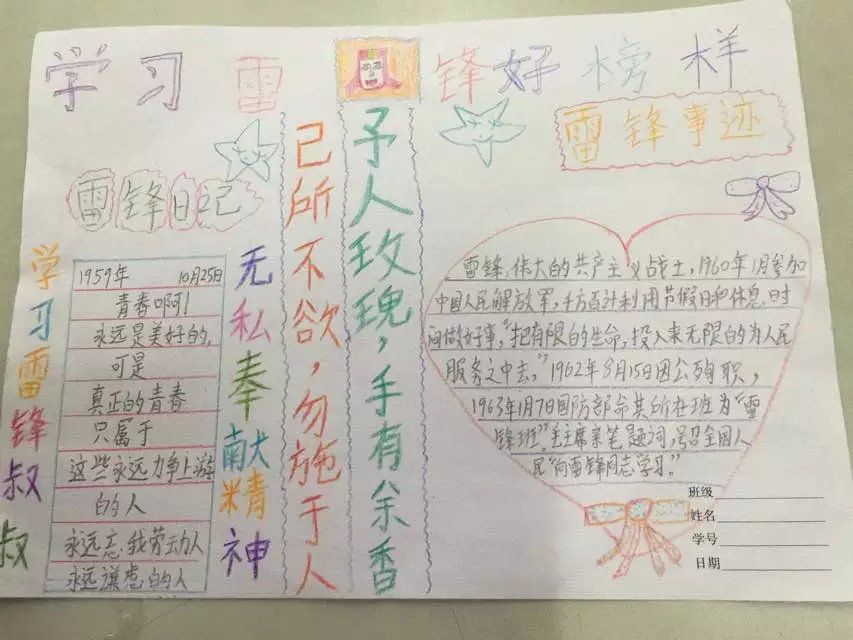 学习雷锋好榜样
雷锋事迹
雷锋日记
学习雷锋叔叔
1959年 10月25日
青春啊!
永远是美好的,
可是
真正的青春
只属于
这些永远力争上游
的人
永远忘我劳动人
永远谦虑的人
无私奉献精神
己所不欲,勿施于人
予人玫瑰,手有余香
雷锋,伟大的共产主义战士,1960年1月参加
中国人民解放军,千方百计利用节假日和休息时
间做好事,"把有限的生命,投入来无限的为人民
服务之中去,"1962年8月15日因公殉职,
1963年1月7日国防部命其所在班为"雷
锋班",主席亲笔题词,号召全国人
民"向雷锋同志学习."
班级
姓名
学号
日期